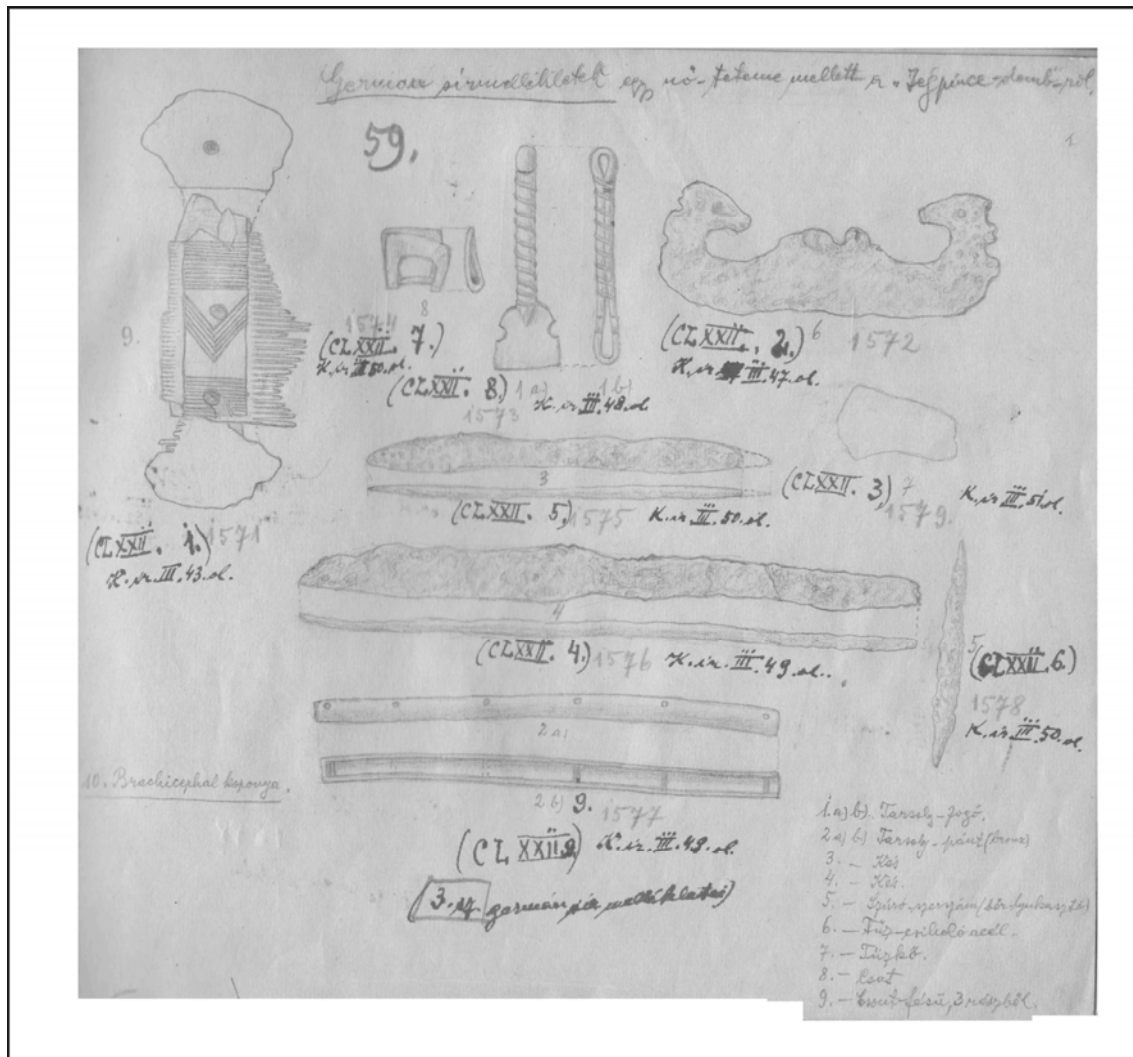 Germán sírmellékletek egy nő-teteme mellett a "Jégpince-domb"-ról.
1
59.
9.
8
1574
(CLXXII. 7.)
K. ir. III. 50. ol.
(CLXXII. 8.) 1 a) 1 b)
1573 K. ir. III. 48. ol.
(CLXXII. 2.) 6 1572
K. ir. III. 47. ol.
3
(CLXXII. 5.) 1575 K. ir. III. 50. ol.
(CLXXII. 3.) 7 1579.
K. ir. III. 51. ol.
(CLXXII. 1.) 1571
K. ir. III. 43. ol.
4
(CLXXII. 4.) 1576 K. ir. III. 49. ol.
5 (CLXXII. 6.)
1578
K. ir. III. 50. ol.
2 a)
10. Brachicephal koponya.
2. b) 9. 1577
(CLXXII. K. ir. III. 49. ol.
(3. sz. germán sír mellékletei)
1. a) b) Tarsoly-fogó.
2 a) b) Tarsoly-pánt (bronz)
3. – Kés
4. – Kés.
5. – szerszám (bőrlyukasztó)
6. – Tűz-csiholó acél.
7. – Tűzkő.
8. – Csat
9. – Csont-fésű, 3 részből.